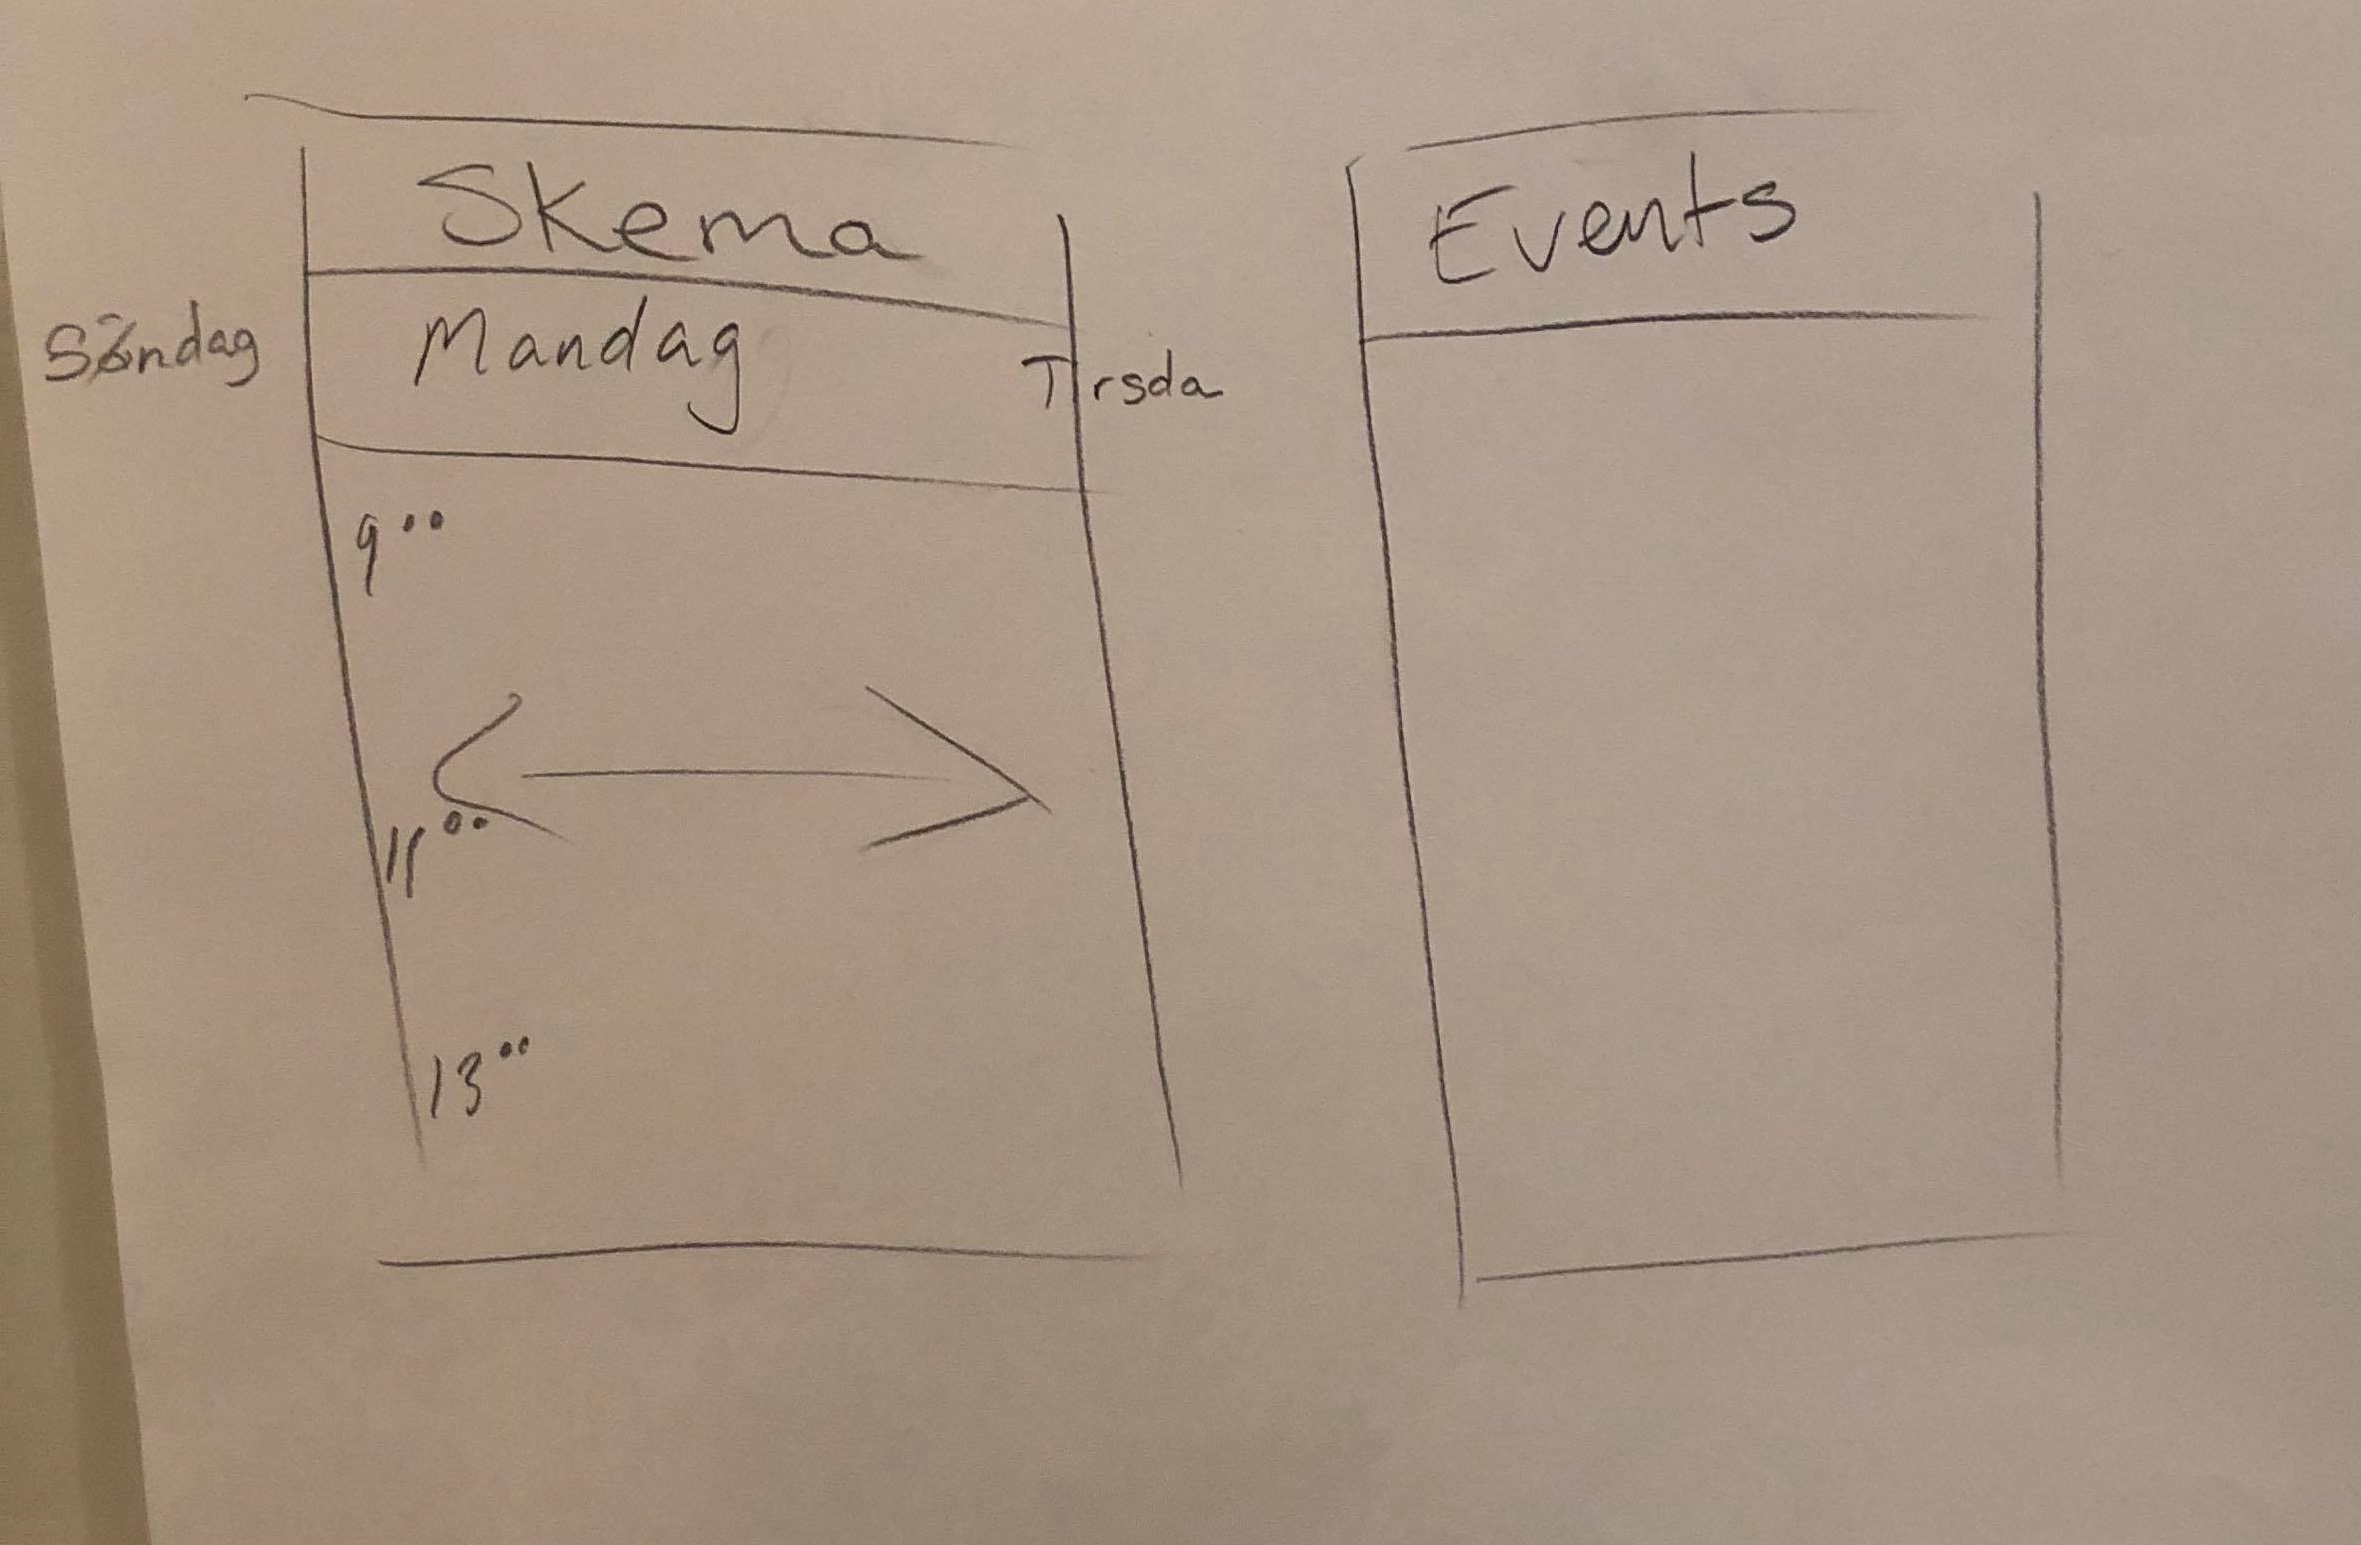 Skema
Søndag Mandag Tirsda
9⁰⁰
11⁰⁰
13⁰⁰
Events